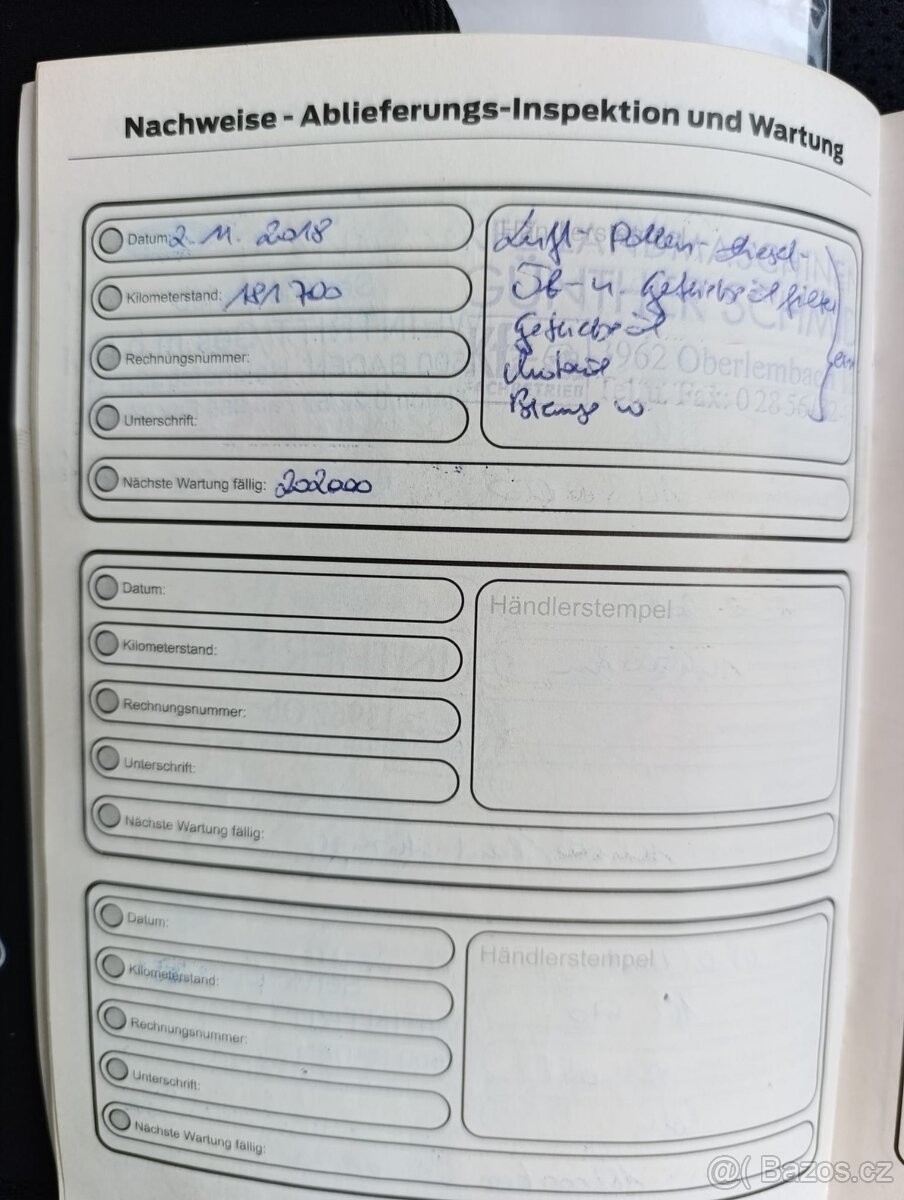 Nachweise - Ablieferungs-Inspektion und Wartung
Datum: 2. 11. 2018
Kilometerstand: 181 700
Rechnungsnummer:
Unterschrift:
Nächste Wartung fällig: 202000
Luft- Pollen- Diesel-
Öl- u. Getriebeöl
Getriebeöl
Motoröl
3962 Oberlembach
Tel.u. Fax: 0 28 56
Datum:
Kilometerstand:
Rechnungsnummer:
Unterschrift:
Nächste Wartung fällig:
Händlerstempel
Datum:
Kilometerstand:
Rechnungsnummer:
Unterschrift:
Nächste Wartung fällig:
Händlerstempel
@( Bazos.cz